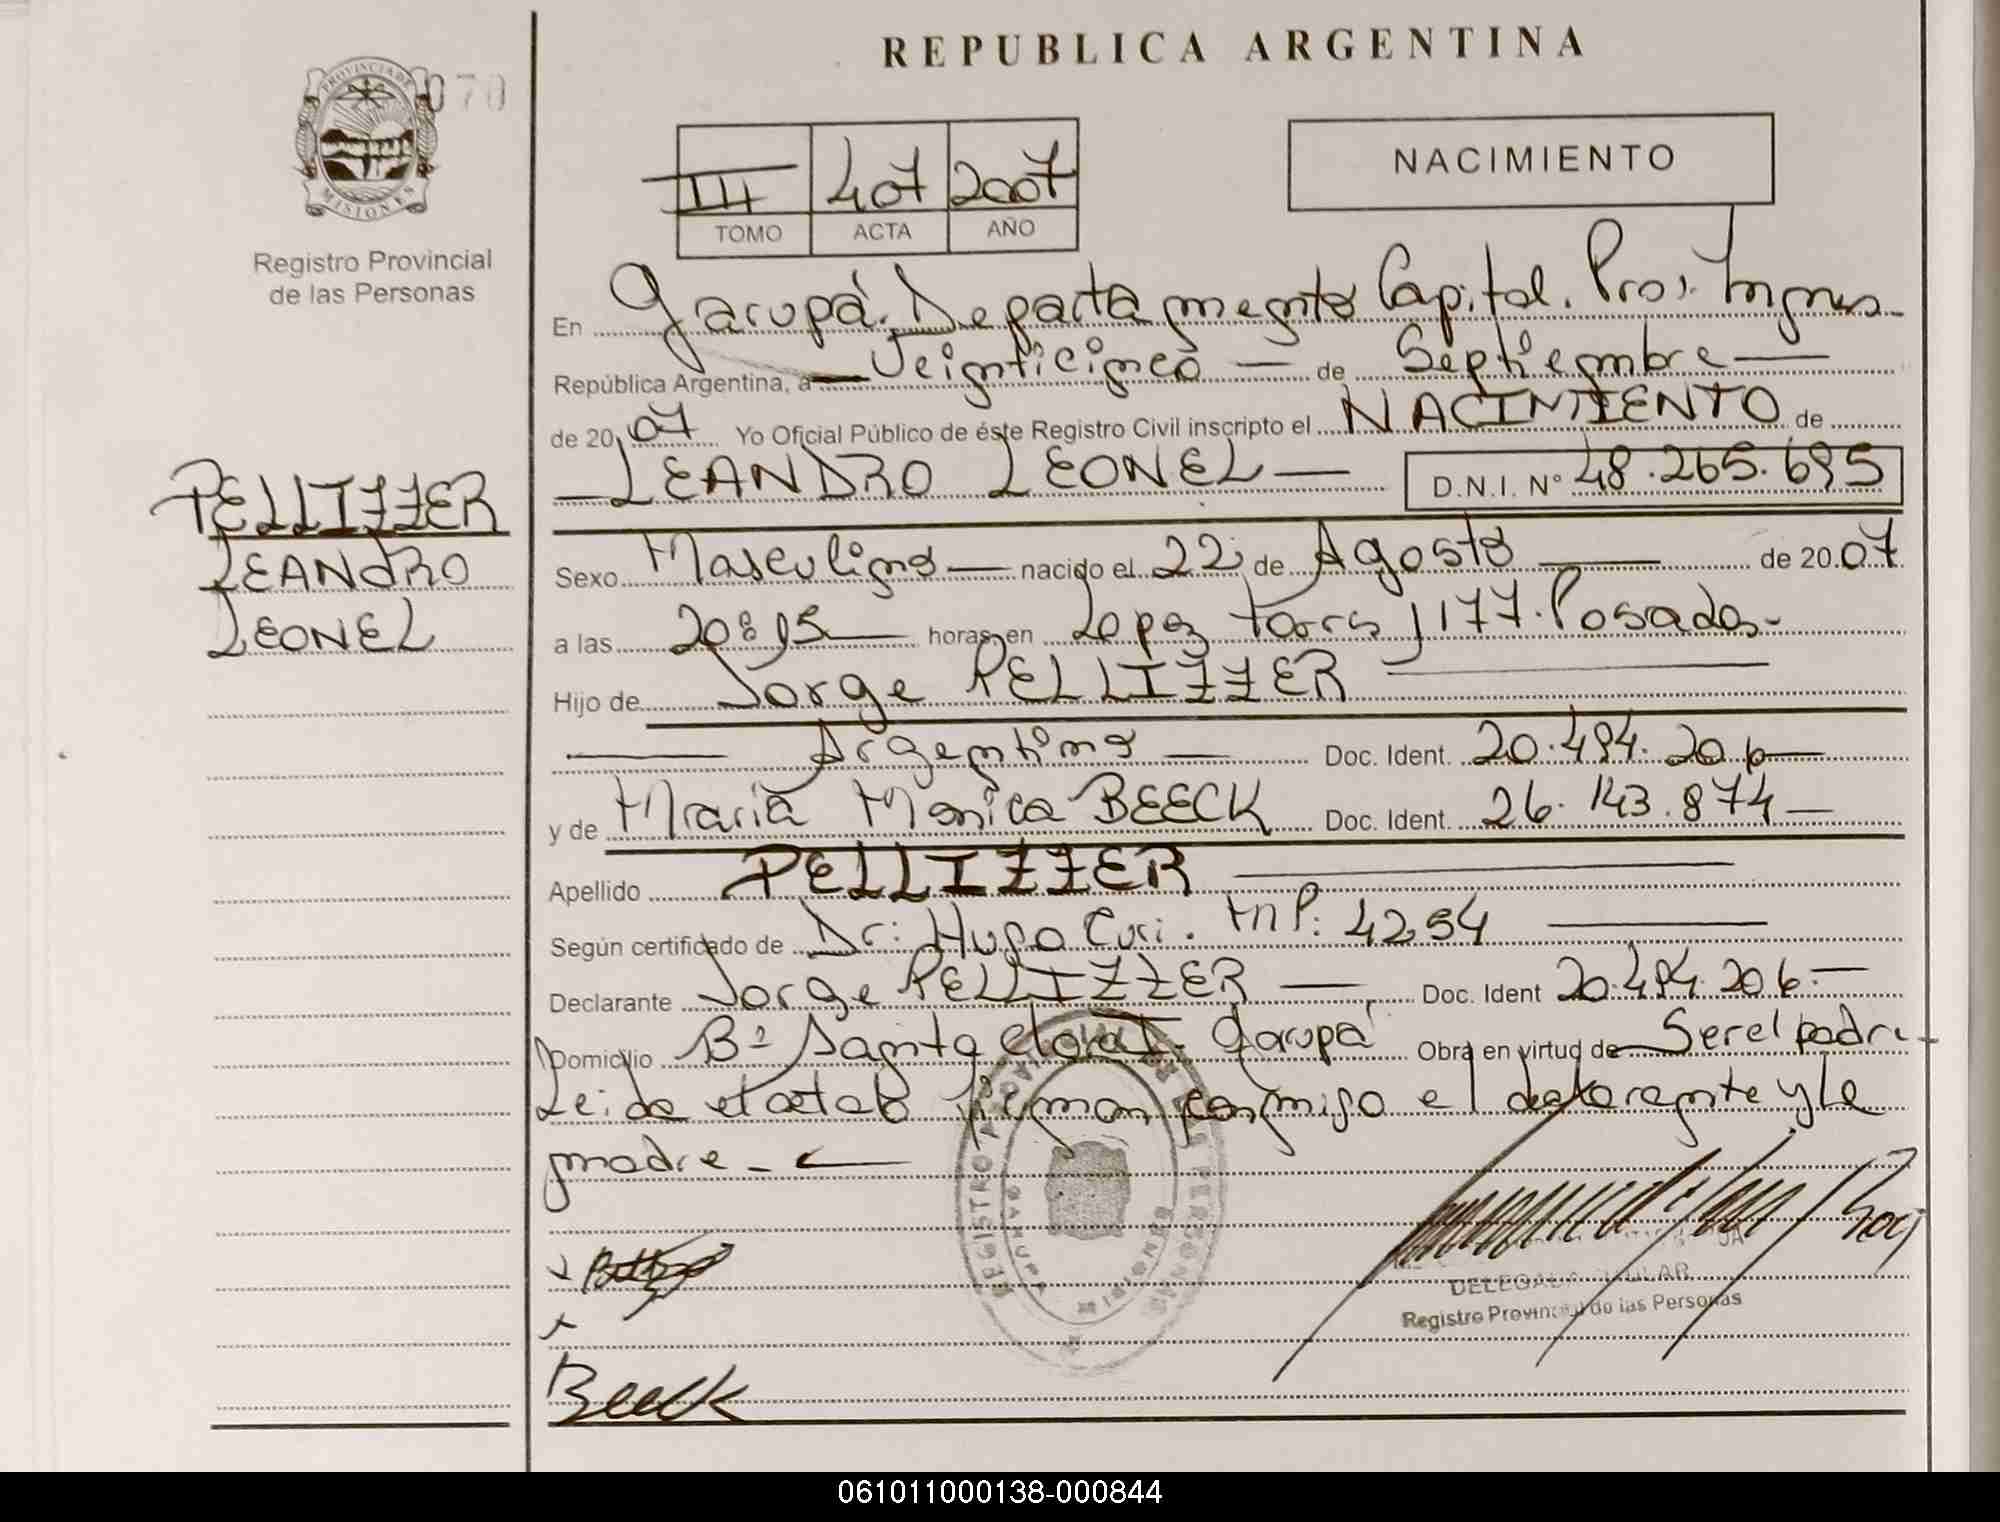 REPUBLICA ARGENTINA
PROVINCIA DE
MISIONES
070
Registro Provincial
de las Personas
III 407 2007
TOMO ACTA AÑO
NACIMIENTO
En Garupá. Departamento Capital. Prov. Mnes.
República Argentina, a Veinticinco de Septiembre
de 2007 Yo Oficial Público de éste Registro Civil inscripto el NACIMIENTO de
LEANDRO LEONEL D.N.I. Nº 48.265.695
PELLIZZER
LEANDRO
LEONEL
Sexo Masculino nacido el 22 de Agosto de 2007
a las horas en Lopez Torres 1177. Posadas-
Hijo de Jorge PELLIZZER
Argentino Doc. Ident. 20.494.206
y de Maria Monica BEECK Doc. Ident. 26.143.874
Apellido PELLIZZER
Según certificado de Dr: Hugo Curi. MP: 4254
Declarante Jorge PELLIZZER Doc. Ident 20.494.206-
Domicilio Bº Santa Clara I. Garupá Obra en virtud de Ser el padre
Leida el acta firman conmigo el declarante y la
madre-
REGISTRO PERSONAS
GARUPA MISIONES
DELEGADA TITULAR
Registro Provincial de las Personas
Beeck
061011000138-000844